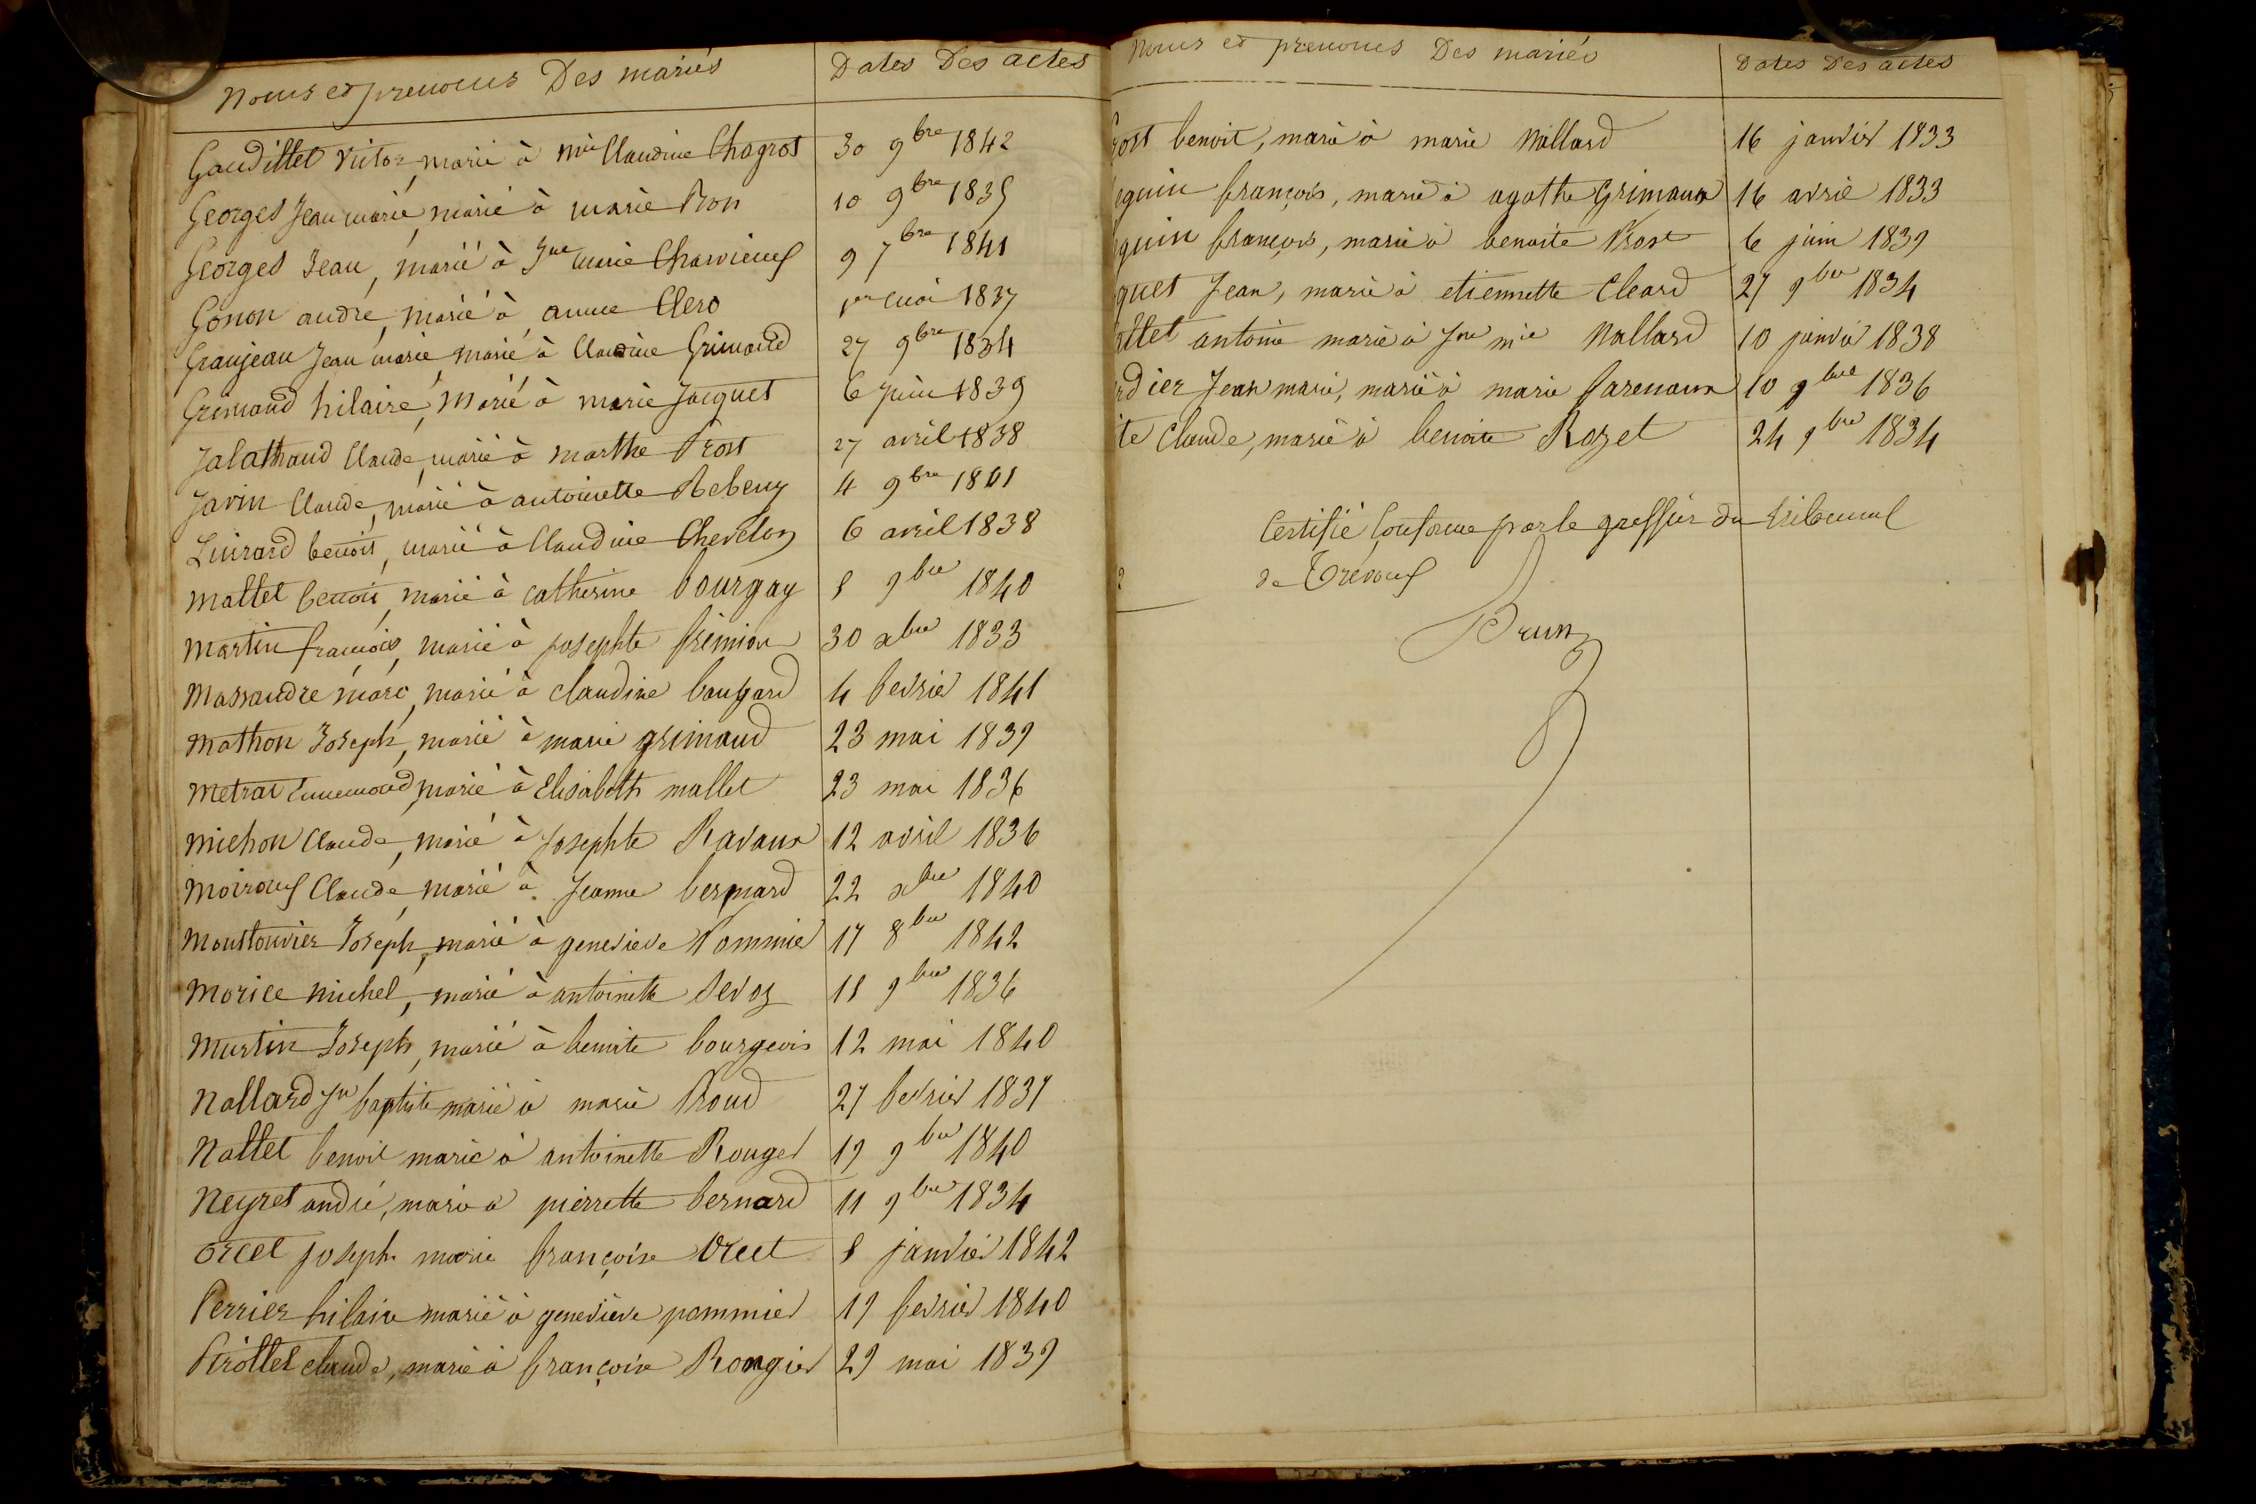 Noms et prenoms Des mariés
Dates Des actes
Gaudillet Victor, marié à mie Claudine Chagros 30 9bre 1842
Georges Jean marie, marié à marie Pron 10 9bre 1835
Georges Jean, marié à Jne marie 9 7bre 1841
Gonon andré, marié à anne Clero 1er mai 1837
Granjean Jean marie, marié à Claudine Grimaud 27 9bre 1834
Grimaud hilaire, Marié à marie Jacquet 6 Juin 1839
Jalathaud Claude, marié à marthe Prost 27 avril 1838
Javin Claude, marié à antoinette 4 9bre 1841
benoit, marié à Claudine 6 avril 1838
Mallet benoit, marié à catherine bourgay 8 9bre 1840
Martin françois, marié à josephte frémion 30 xbre 1833
Massandre marc, marié à claudine 4 fevrier 1841
Mathon Joseph, marié à marie grimaud 23 mai 1839
Metrat Ennemond marié à Elisabeth mallet 23 mai 1836
Michon Claude, marié à Josephte Ravaux 12 avril 1836
Moiroud Claude, marié à Jeanne bernard 22 xbre 1840
Joseph, marié à genevieve Pommier 17 8bre 1842
Morice Michel, marié à antoinette 18 9bre 1836
Murtin Joseph, marié à benoite bourgeois 12 mai 1840
Nallard Jn baptiste marié à marie Proud 27 fevrier 1837
Nallet benoit marié à antoinette Rouger 19 9bre 1840
Neyret andré, marié à pierrette bernard 11 9bre 1834
Orcet joseph marié françoise Orcet 8 janvier 1842
Perrier hilaire marié à geneviève pommier 19 fevrier 1840
Pirollet claude, marié à françoise Rongier 29 mai 1839
Noms et prenoms Des mariés
Dates Des actes
rost benoit, marié à marie Nallard 16 janvier 1833
quin françois, marié à agathe Grimaux 16 avril 1833
quin françois, marié à benoite Prost 6 juin 1839
quet Jean, marié à etiennette Cleard 27 9bre 1834
llet antoine marié à Jne mie Nallard 10 janvier 1838
dier Jean marie, marié à marie farenaux 10 9bre 1836
te Claude, marié à benoite Rozet 24 9bre 1834
Certifié Conforme par le greffier du tribunal
de Trévoux
Brun